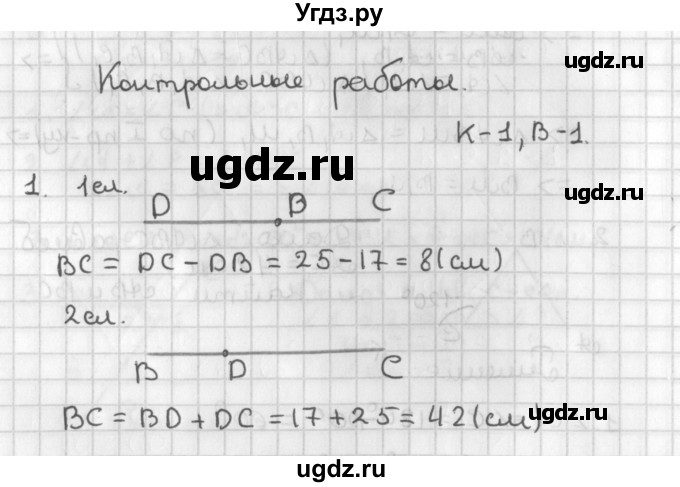 Угдз.ру
ugdz.ru
Контрольные работы.
К-1, В-1.
ugdz.ru
ugdz.ru
1. 1сл.
D B C
BC = DC - DB = 25 - 17 = 8 (см)
2сл.
ugdz.ru
ugdz.ru
B D C
BC = BD + DC = 17 + 25 = 42 (см)
ugdz.ru
ugdz.ru
ugdz.ru